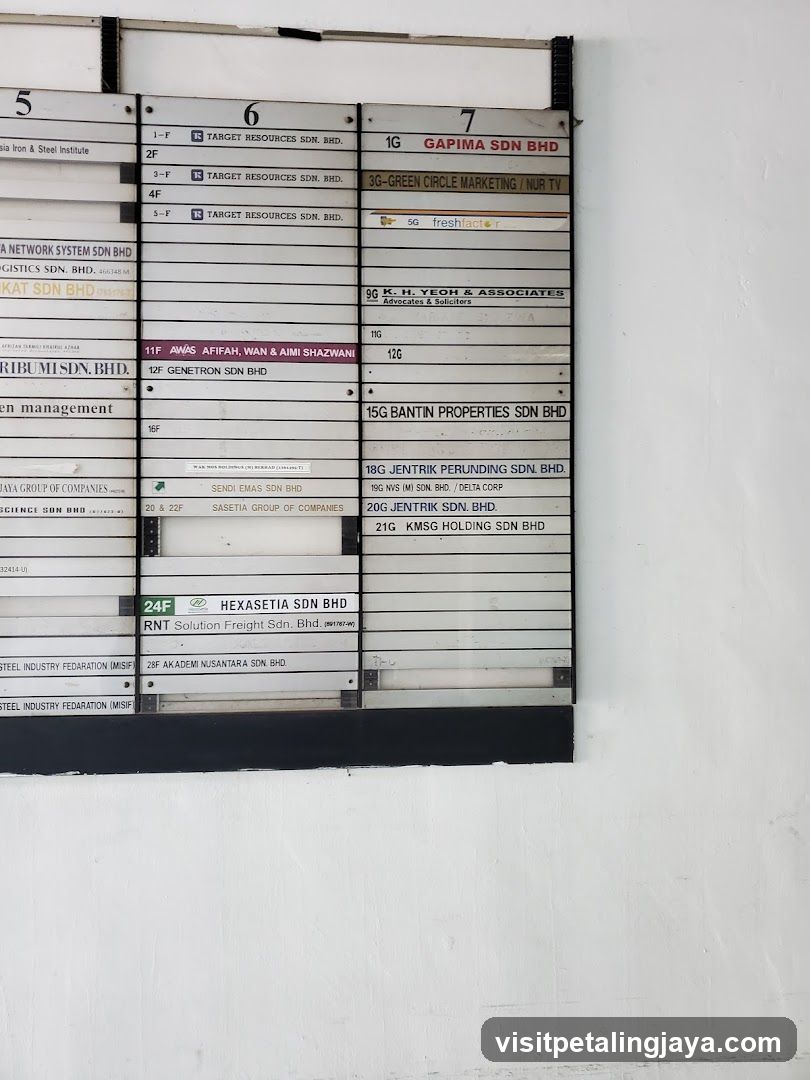 5
sia Iron & Steel Institute
A NETWORK SYSTEM SDN BHD
OGISTICS SDN. BHD. 466348 M
KAT SDN BHD
RIBUMI SDN. BHD.
en management
JAYA GROUP OF COMPANIES
SCIENCE SDN BHD
32414-U)
STEEL INDUSTRY FEDARATION (MISIF)
STEEL INDUSTRY FEDARATION (MISIF)
6
1-F TR TARGET RESOURCES SDN. BHD.
2F
3-F TR TARGET RESOURCES SDN. BHD.
4F
5-F TR TARGET RESOURCES SDN. BHD.
11F AWAS AFIFAH, WAN & AIMI SHAZWANI
12F GENETRON SDN BHD
16F
SENDI EMAS SDN BHD
20 & 22F SASETIA GROUP OF COMPANIES
24F HEXASETIA SDN BHD
RNT Solution Freight Sdn. Bhd. (891767-W)
28F AKADEMI NUSANTARA SDN. BHD.
7
1G GAPIMA SDN BHD
3G-GREEN CIRCLE MARKETING / NUR TV
5G freshfactor
9G K. H. YEOH & ASSOCIATES
Advocates & Solicitors
11G
12G
15G BANTIN PROPERTIES SDN BHD
18G JENTRIK PERUNDING SDN. BHD.
19G NVS (M) SDN. BHD. / DELTA CORP
20G JENTRIK SDN. BHD.
21G KMSG HOLDING SDN BHD
visitpetalingjaya.com